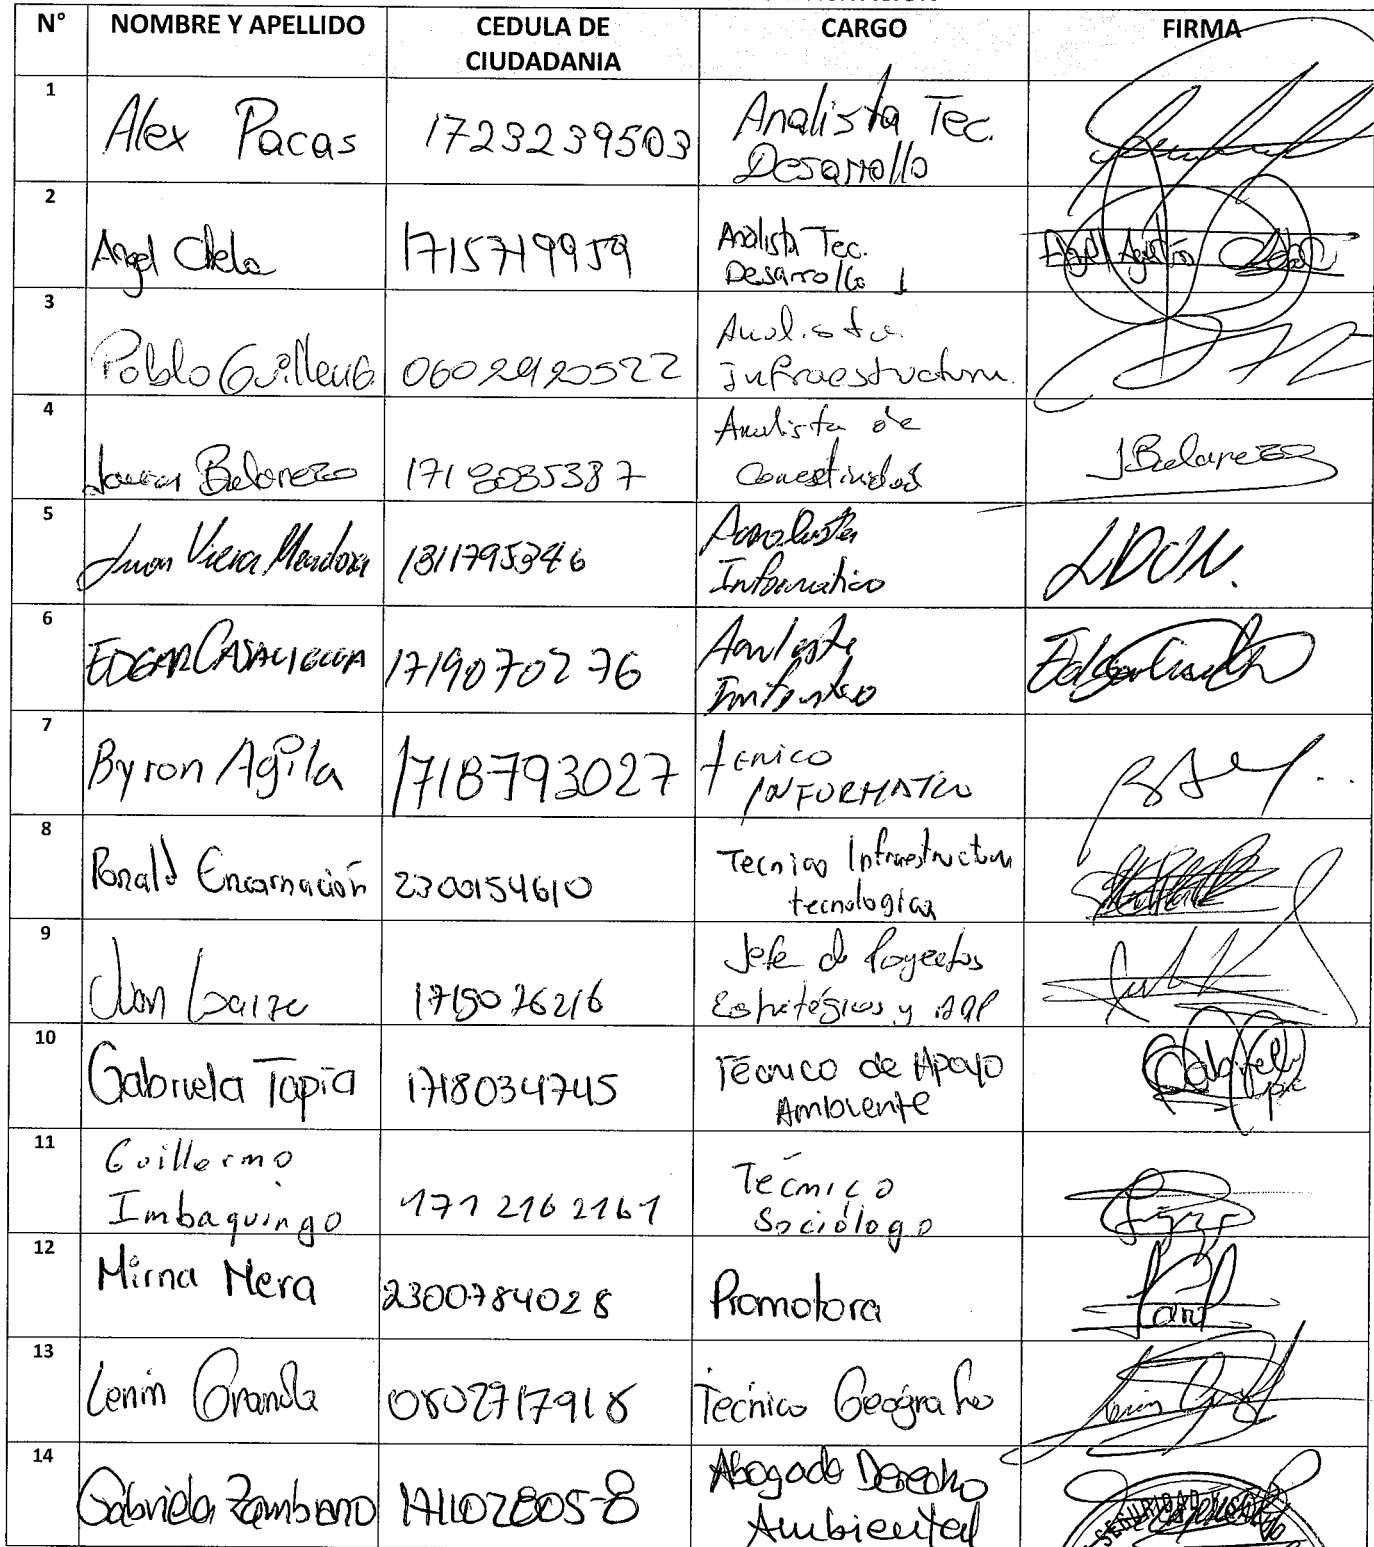 N° NOMBRE Y APELLIDO CEDULA DE CIUDADANIA CARGO FIRMA
1 Alex Pacas 1723239503 Analista Tec. Desarrollo
2 Angel Chela 1715719959 Analista Tec. Desarrollo 1
3 Pablo 0602920522 Analista Infraestructura.
4 Belarezo Analista de Conectividad JBelarezo
5 Juan Viera Mendoza 1311795346 Analista Informatico
6 EDGAR 1719070276 Analista
7 Byron Agila 1718793027 tenico INFORMATICO
8 Ronald Encarnación 2300154610 Tecnico Infraestructura tecnologica
9 Juan Loaiza Jefe de Proyectos Estratégicos y
10 Gabriela Tapia 1718034745 Técnico de Apoyo Ambiente Gabriel
11 Guillermo Imbaquingo 171 216 2161 Técnico Sociólogo
12 Mirna Mera 2300784028 Promotora
13 Lenin Granda 0802717918 Tecnico Geógrafo
14 Gabriela Zambrano 171102805-8 Abogado Derecho Ambiental
SEGURIDAD